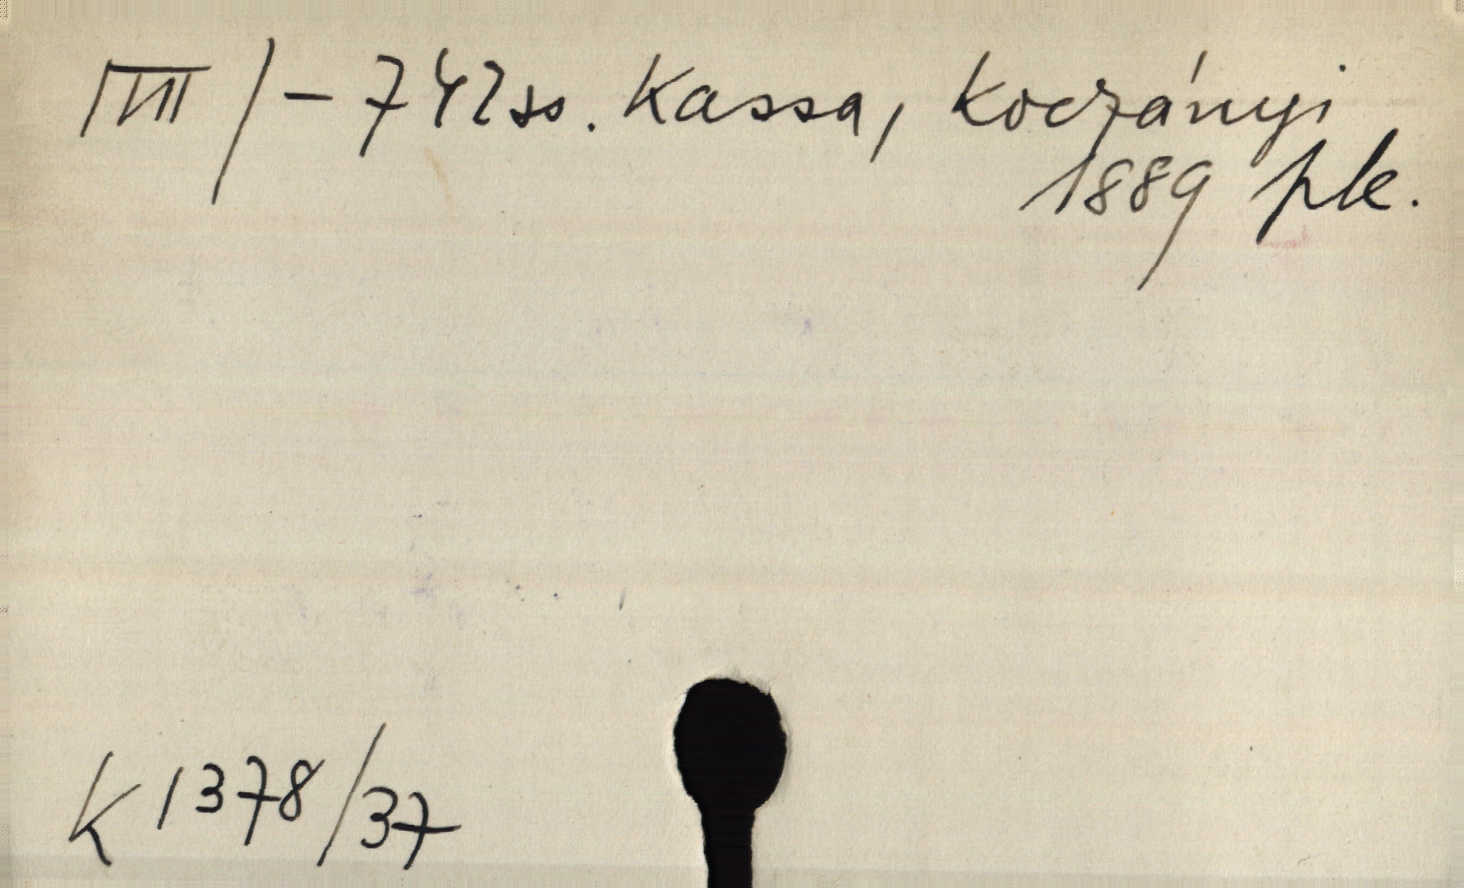 VIII / - 742 ss. Kassa, Koczányi
1889 plc.
K 1378/37